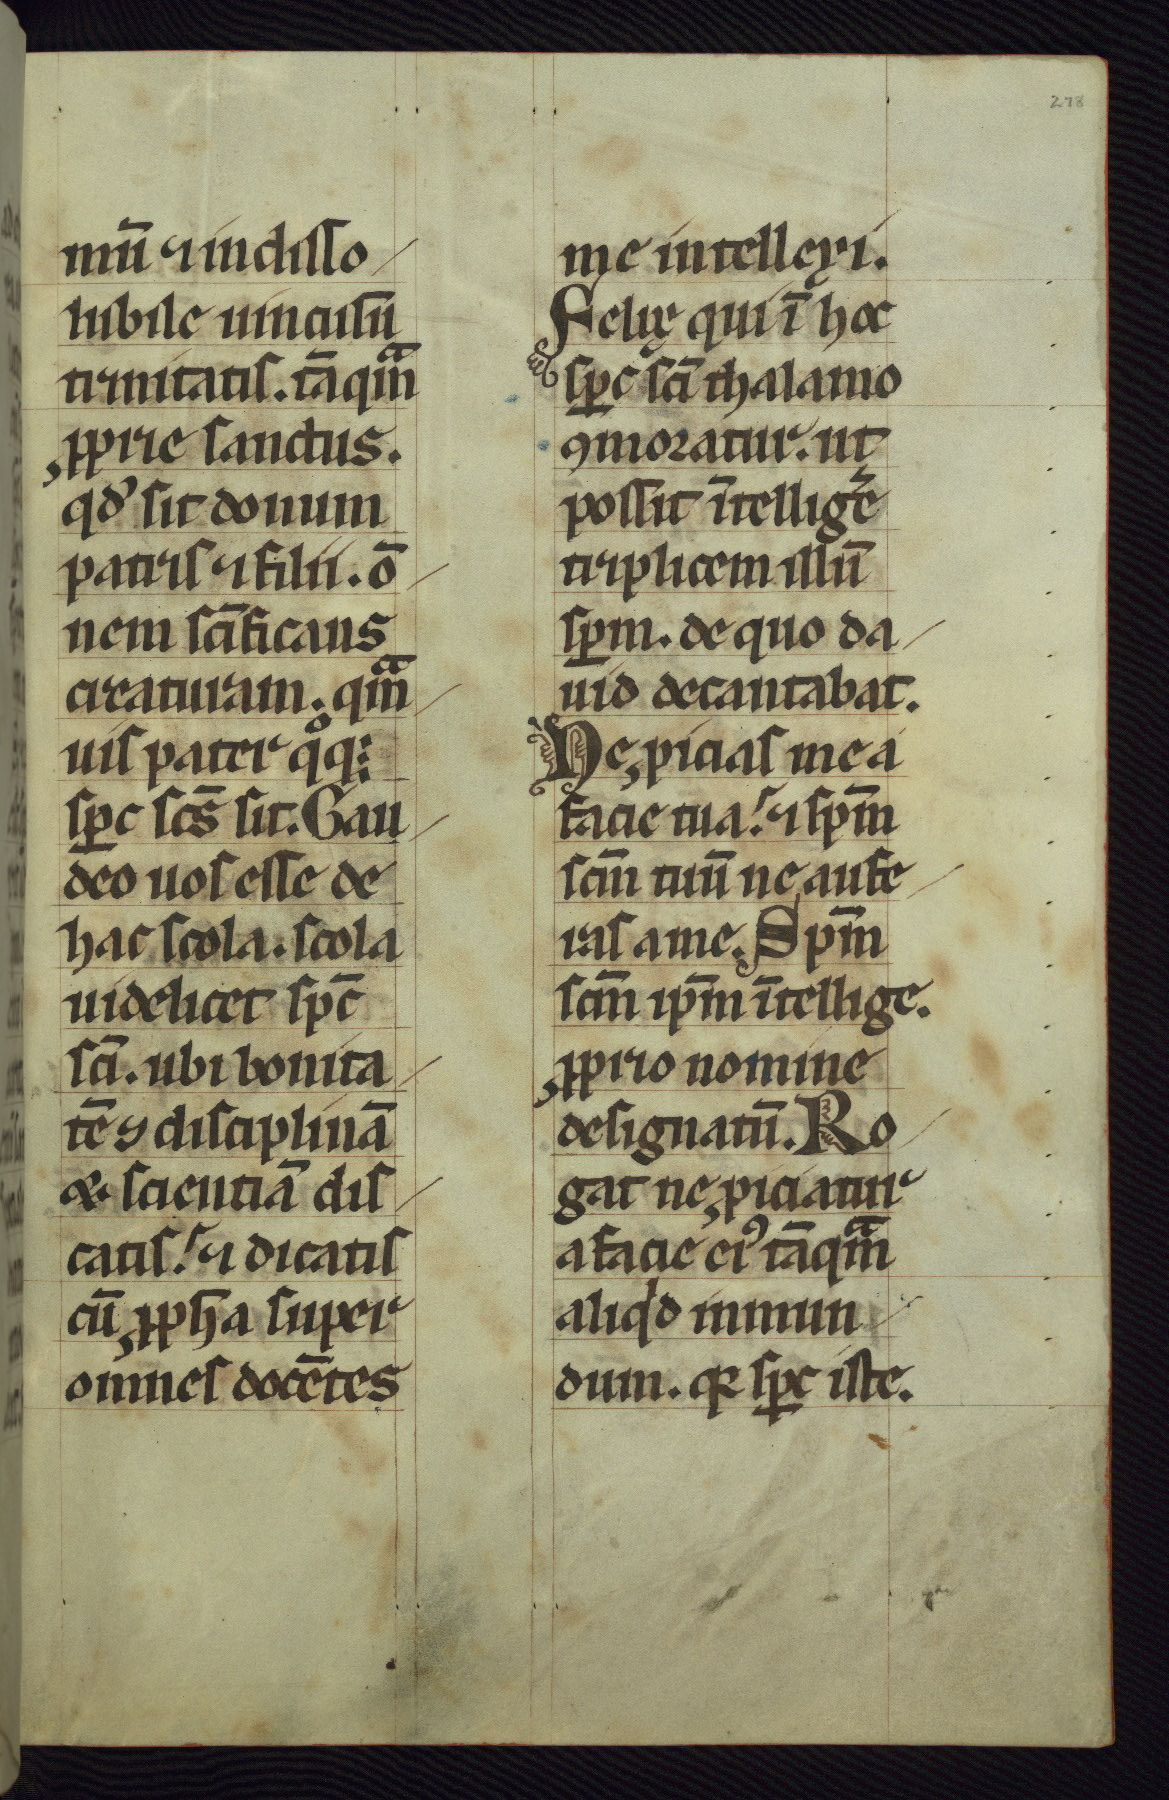 278
mū ⁊ indisso
lubile uinculū
trinitatis. tāqᷓm
ꝓprie sanctus.
qd̓ sit donum
patris ⁊ filii. ō
nem scīficans
creaturam. qᷓm
uis pater qͦq;
sp̲c scs̄ sit. Gau
deo uos esse de
hac scola. scola
uidelicet spc̄
scī. ubi bonita
tē ⁊ disciplinā
& scientiā dis
catis. ⁊ dicatis
cū ꝓph̄a super
omnes docētes
me intellexi.
Felix qui ī hoc
sp̲c scī thalamo
ꝯmoratur. ut
possit ītellige᷑
triplicem illū
sp̲m. de quo da
uid decantabat.
Ne ꝓicias me a
facie tua. ⁊ spm̄
scm̄ tuū ne aufe
ras a me. Spm̄
scm̄ ipm̄ ītellige.
ꝓprio nomine
designatū. Ro
gat ne ꝓiciatur
a facie eiꝰ tāqᷓm
aliqͥd inmun
dum. qꝛ sp̲c iste.